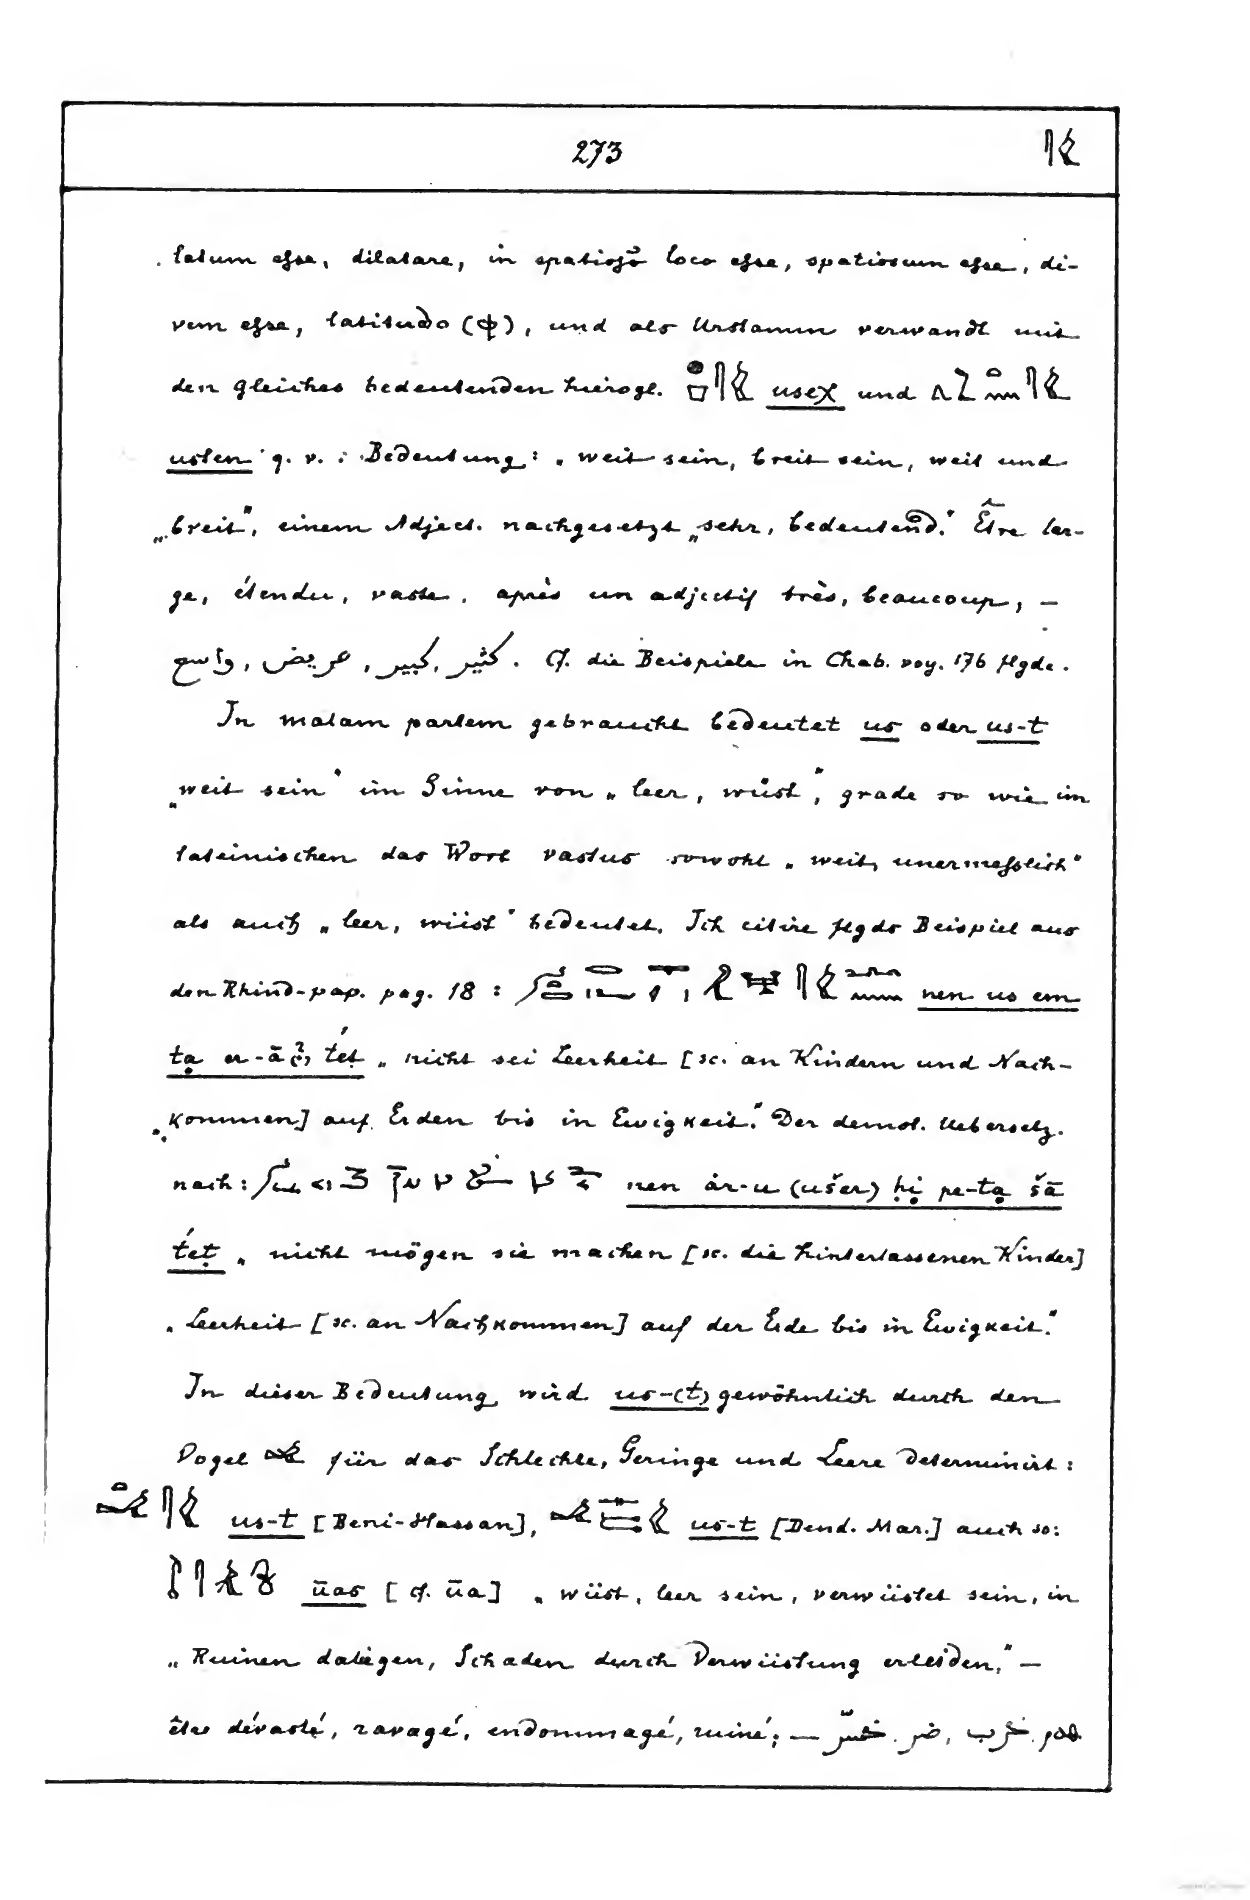 273
latum esse, dilatare, in spatioso loco esse, spatiosum esse, di-
vem esse, latitudo (ф), und als Urstamm verwandt mit
den gleiches bedeutenden hierogl. usex und
usten q. v. : Bedeutung: „weit sein, breit sein, weit und
„breit", einem Adject. nachgesetzt „sehr, bedeutend." Être lar-
ge, étendu, vaste, après un adjectif très, beaucoup, —
واسع, عريض, كبير, كثير. Cf. die Beispiele in Chab. voy. 176 flgde.
In malam partem gebraucht bedeutet us oder us-t
„weit sein" im Sinne von „leer, wüst", grade so wie im
lateinischen das Wort vastus sowohl „weit, unermesslich"
als auch „leer, wüst" bedeutet. Ich citire flgds Beispiel aus
den Rhind-pap. pag. 18 : nen us em
ta er-ā tet „nicht sei Leerheit [sc. an Kindern und Nach-
„kommen] auf Erden bis in Ewigkeit." Der demot. Uebersetz.
nach: nen ár-u (ušer) ḥi pe-ta šā
tet „nicht mögen sie machen [sc. die hinterlassenen Kinder]
„Leerheit [sc. an Nachkommen] auf der Erde bis in Ewigkeit."
In dieser Bedeutung wird us-(t) gewöhnlich durch den
Vogel 𓅪 für das Schlechte, Geringe und Leere determinirt:
us-t [Beni-Hassan], us-t [Dend. Mar.] auch so:
ūas [cf. ūa] „wüst, leer sein, verwüstet sein, in
„Ruinen daliegen, Schaden durch Verwüstung erleiden," —
être dévasté, ravagé, endommagé, ruiné; — خسّر, ضر, خرب, هدم